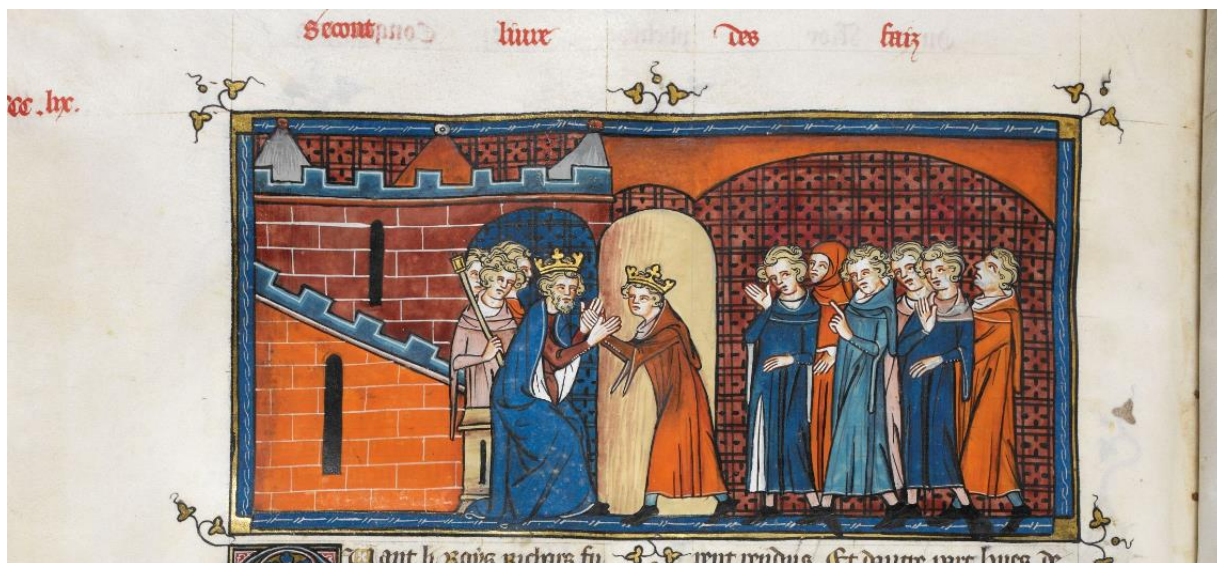 Secont liure des faiz
Quant li Roys Richars fu
rent rendus. Et dautre part hues de